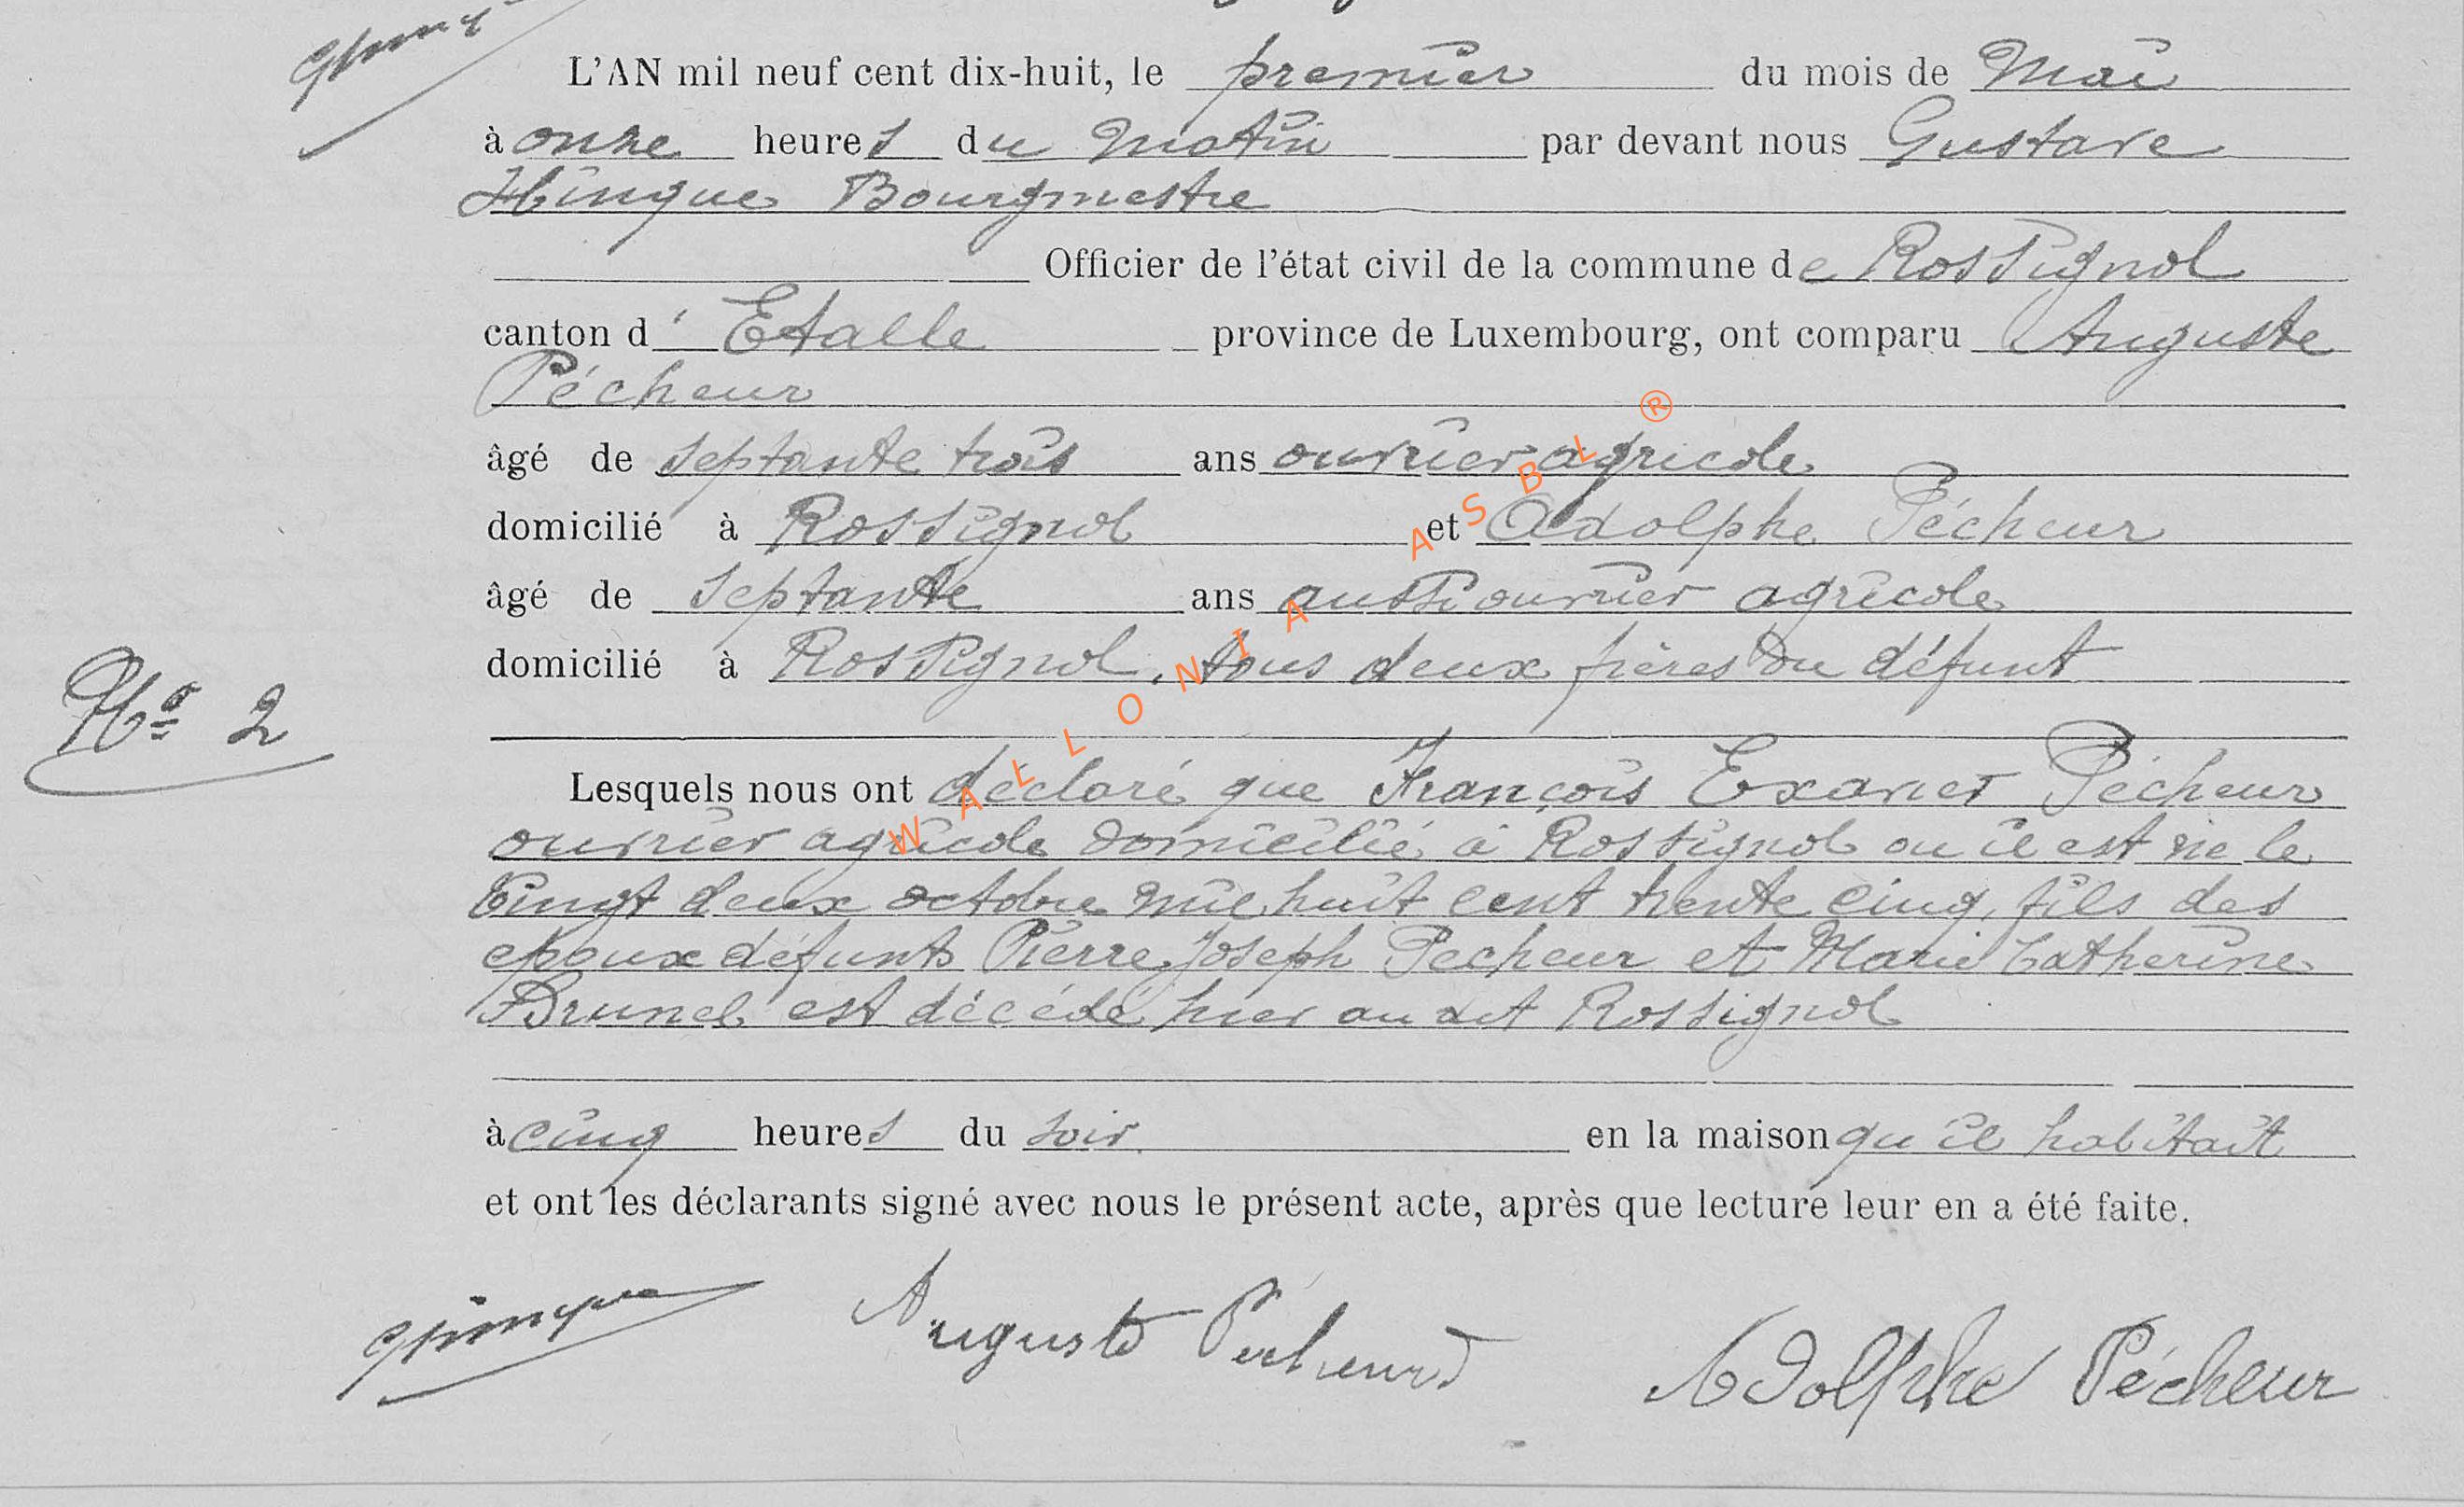 L'AN mil neuf cent dix-huit, le premier du mois de Mai
à onze heures du Matin par devant nous Gustave
Hinque Bourgmestre
Officier de l'état civil de la commune de Rossignol
canton d' Etalle province de Luxembourg, ont comparu Auguste
Pécheur
âgé de septante trois ans ouvrier agricole
domicilié à Rossignol et Adolphe Pécheur
âgé de Septante ans aussi ouvrier agricole
domicilié à Rossignol, tous deux frères du défunt
No 2
Lesquels nous ont déclaré que François Exavier Pécheur
ouvrier agricole domicilié à Rossignol ou il est né le
vingt deux octobre mil huit cent trente cinq, fils des
epoux défunts Pierre Joseph Pecheur et Marie Catherine
Brunel est décédé hier au dit Rossignol
à cinq heures du soir en la maison qu il habitait
et ont les déclarants signé avec nous le présent acte, après que lecture leur en a été faite.
GHinque Auguste Pécheur Adolphe Pécheur
WALLONIA ASBL ®